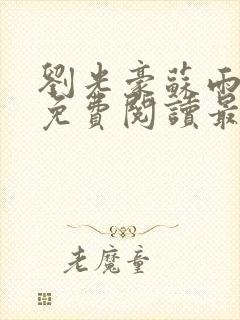 劉光豪蘇雨
免費閱讀最
老魔童